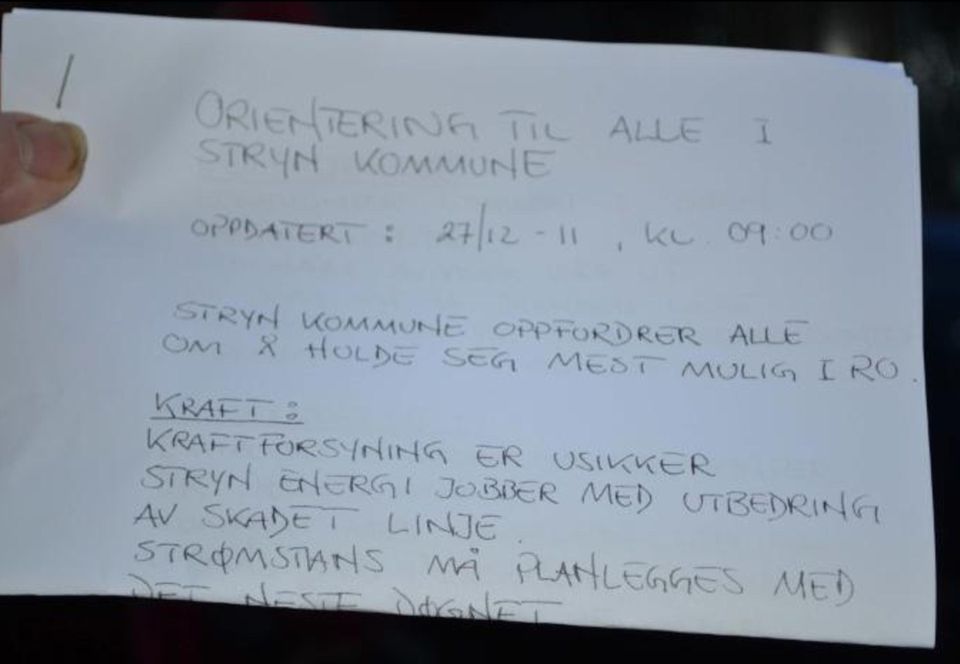 1
ORIENTERING TIL ALLE I
STRYN KOMMUNE
OPPDATERT : 27/12 - 11 , KL. 09:00
STRYN KOMMUNE OPPFORDRER ALLE
OM Å HOLDE SEG MEST MULIG I RO.
KRAFT :
KRAFTFORSYNING ER USIKKER
STRYN ENERGI JOBBER MED UTBEDRING
AV SKADET LINJE.
STRØMSTANS MÅ PLANLEGGES MED
DET NESTE DØGNET